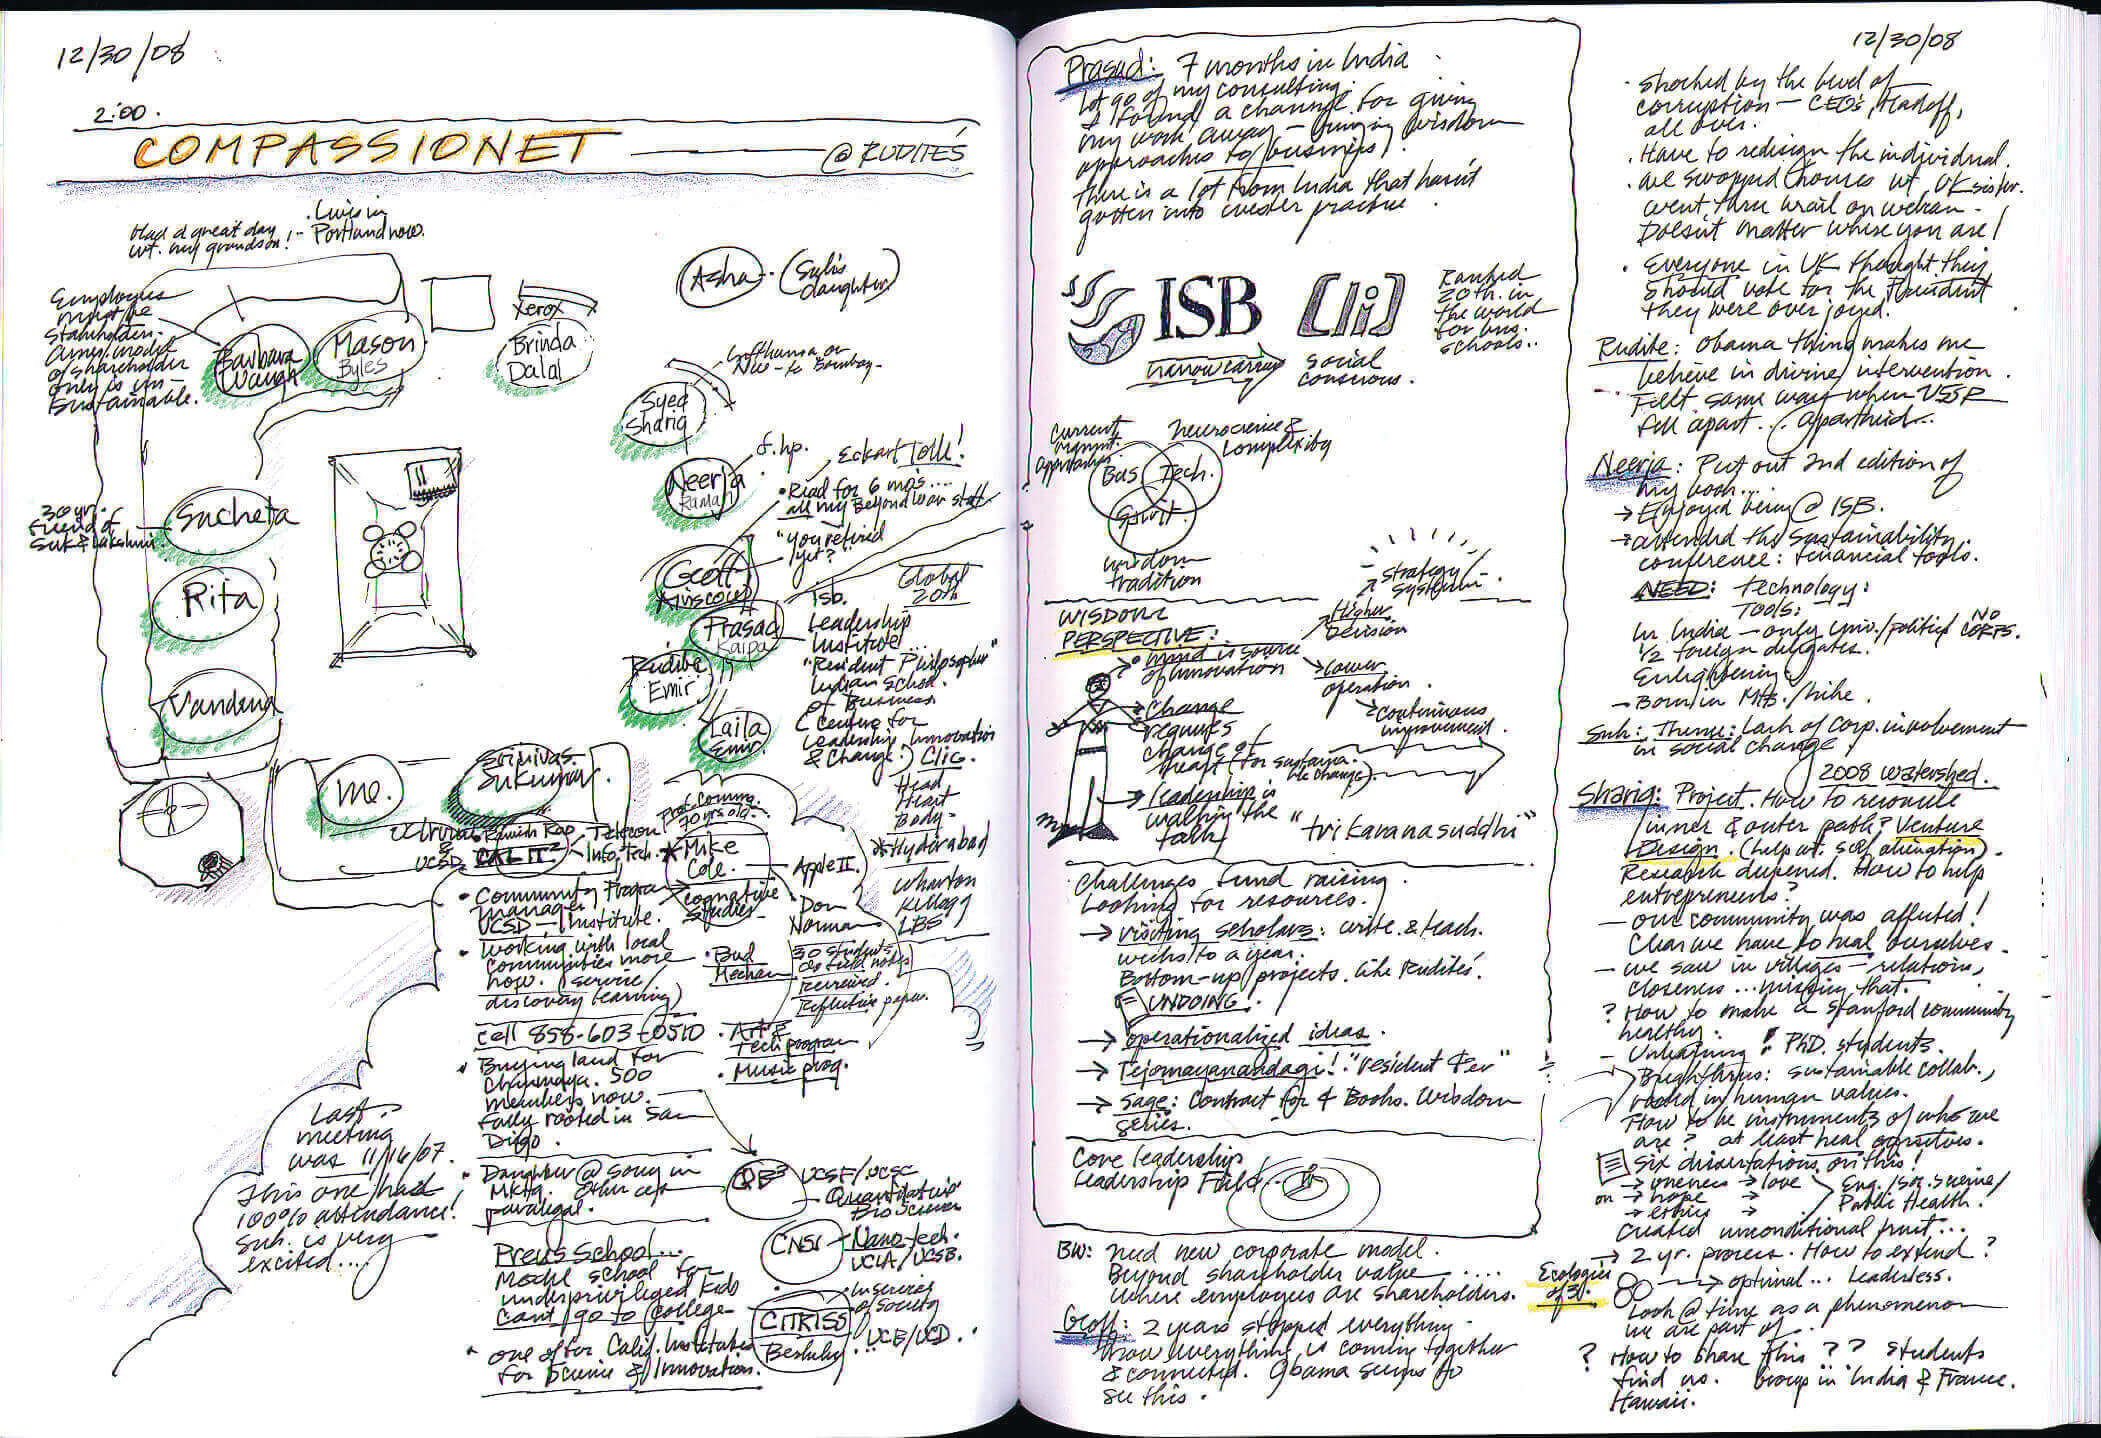 12/30/08
2:00.
COMPASSIONET
@ RUDITE'S
Had a great day
wt. my grandson!
Lives in
Portland now.
Employees
must be
Stakeholders.
model
of shareholder
only is un-
sustainable.
Barbara
Waugh
Mason
Byles
Xerox
Brinda
Dalal
Asha
(Suk's
daughter)
Lufthansa or
to Bombay-
Syed
Shariq
Neerja
Raman
f. hp.
Eckart Tolle!
• Read for 6 mos....
all my Beyond War stuff
"you retired
yet?"
30 yr.
friend of
Suk & Lakshmi.
Sucheta
Rita
Vandena
Geoff
Ainscow
Prasad
Kaipa
Rudite
Emir
Laila
Emir
Global
20th
Isb.
Leadership
Institute...
"Resident Philosopher"
Indian School
of Business
(Center for
Leadership Innovation
& Change.) Clic.
Head
Heart
Body-
* Hyderabad
Wharton
Kellogg
LBS
me.
Srinivas.
Sukumar.
UCSD
Ramesh Rao
CAL IT²
Telecom
Info. Tech.
Prof. Commu.
70 yrs old-
* Mike
Cole.
cognative
studies-
Apple II.
Don
Norman
• Bud
Mechan
30 students
do field notes
Received.
Reflective paper.
• Art &
Tech program
• Music prog.
• Community Program
Manager
UCSD - Institute.
• Working with local
Communities more
now. (service/
discovery learning)
cell 858-603-0510
• Buying land for
Chinmaya. 500
members now.
Fully rooted in San
Diego.
• Daughter @ Sony in
Mktg. Other
paralegal.
Preuss School...
Model school for
underprivileged kids
Can't go to college-
• one of four Calif. Institutes
for Science & Innovation.
QB³
UCSF/UCSC
Quantitative
Bio Science
CNSI
Nano tech.
UCLA/UCSB.
CITRISS
Berkeley
In Service
of Society
UCB/UCD.
Last
meeting
was 11/16/07.
This one had
100% attendance!
Suk. is very
excited....
Prasad: 7 months in India
Let go of my consulting.
I found a channel for giving
my work away - bringing wisdom
approaches to business.
There is a lot from India that hasn't
gotten into wester practice.
ISB
[li]
Ranked
20th. in
the world
for bus.
schools..
narrow carrying
social
conscious.
Current
mgmnt.
Approaches
Neuroscience &
Complexity
Bus
Tech.
Spirit.
wisdom
tradition
WISDOM
PERSPECTIVE:
• mind is source
of innovation
→ Change
requires
change of
heart (for sustaina-
ble change)
→ leadership is
walking the
talk
Higher
Decision
Strategy
System
lower
operation.
continuous
improvement.
"tri karanasuddhi"
Challenges fund raising.
Looking for resources.
→ visiting scholars: write & teach.
weeks to a year.
Bottom-up projects. like Rudite's.
UNDOING.
→ operationalized ideas.
→ Tejomayanandagi! "resident Dev"
→ Sage: Contract for 4 Books. Wisdom
series.
Core leadership
Leadership Field..
BW: need new corporate model.
Beyond shareholder value ....
where employees are shareholders.
Geoff: 2 years stopped everything.
now everything is coming together
& connected. Obama seems to
see this.
12/30/08
• Shocked by the level of
corruption - CEO's, Madoff,
all over.
• Have to redesign the individual.
• We swapped houses wt. UK sister.
Doesn't matter where you are!
• Everyone in UK thought they
should vote for the President
they were over joyed.
Rudite: Obama thing makes me
believe in divine intervention.
- Felt same way when USSR
fell apart... Appartheid...
Neerja: Put out 2nd edition of
my book...
→ Enjoyed being @ ISB.
→ attended the sustainability
conference: Financial tools.
NEED: Technology:
TOOLS:
In India - only Univ./political NO CORPS.
1/2 foreign delegates.
Enlightening
Suk: Theme: Lack of corp. involvement
in social change.
2008 watershed.
Shariq: Project. How to reconcile
inner & outer path? Venture
Design. (help wt. self alienation).
Research deepened. How to help
entrepreneurs?
- our community was affected!
Clear we have to heal ourselves.
- we saw in villages - relations,
closeness ... missing that.
? How to make a Stanford community
healthy.
- Unlearning: PhD. students.
sustainable collab.,
rooted in human values.
How to be instruments of who we
are? at least heal ourselves.
Six dissertations on this!
on → oneness → love
→ hope →
→ ethics →
Eng./Soc. Science/
Public Health.
Created unconditional fruit...
→ 2 yr. process. How to extend?
Ecologies
of 3.
→ optimal... Leaderless.
Look @ time as a phenomenon
we are part of.
? How to share this?? Students
find us. Group in India & France.
Hawaii.